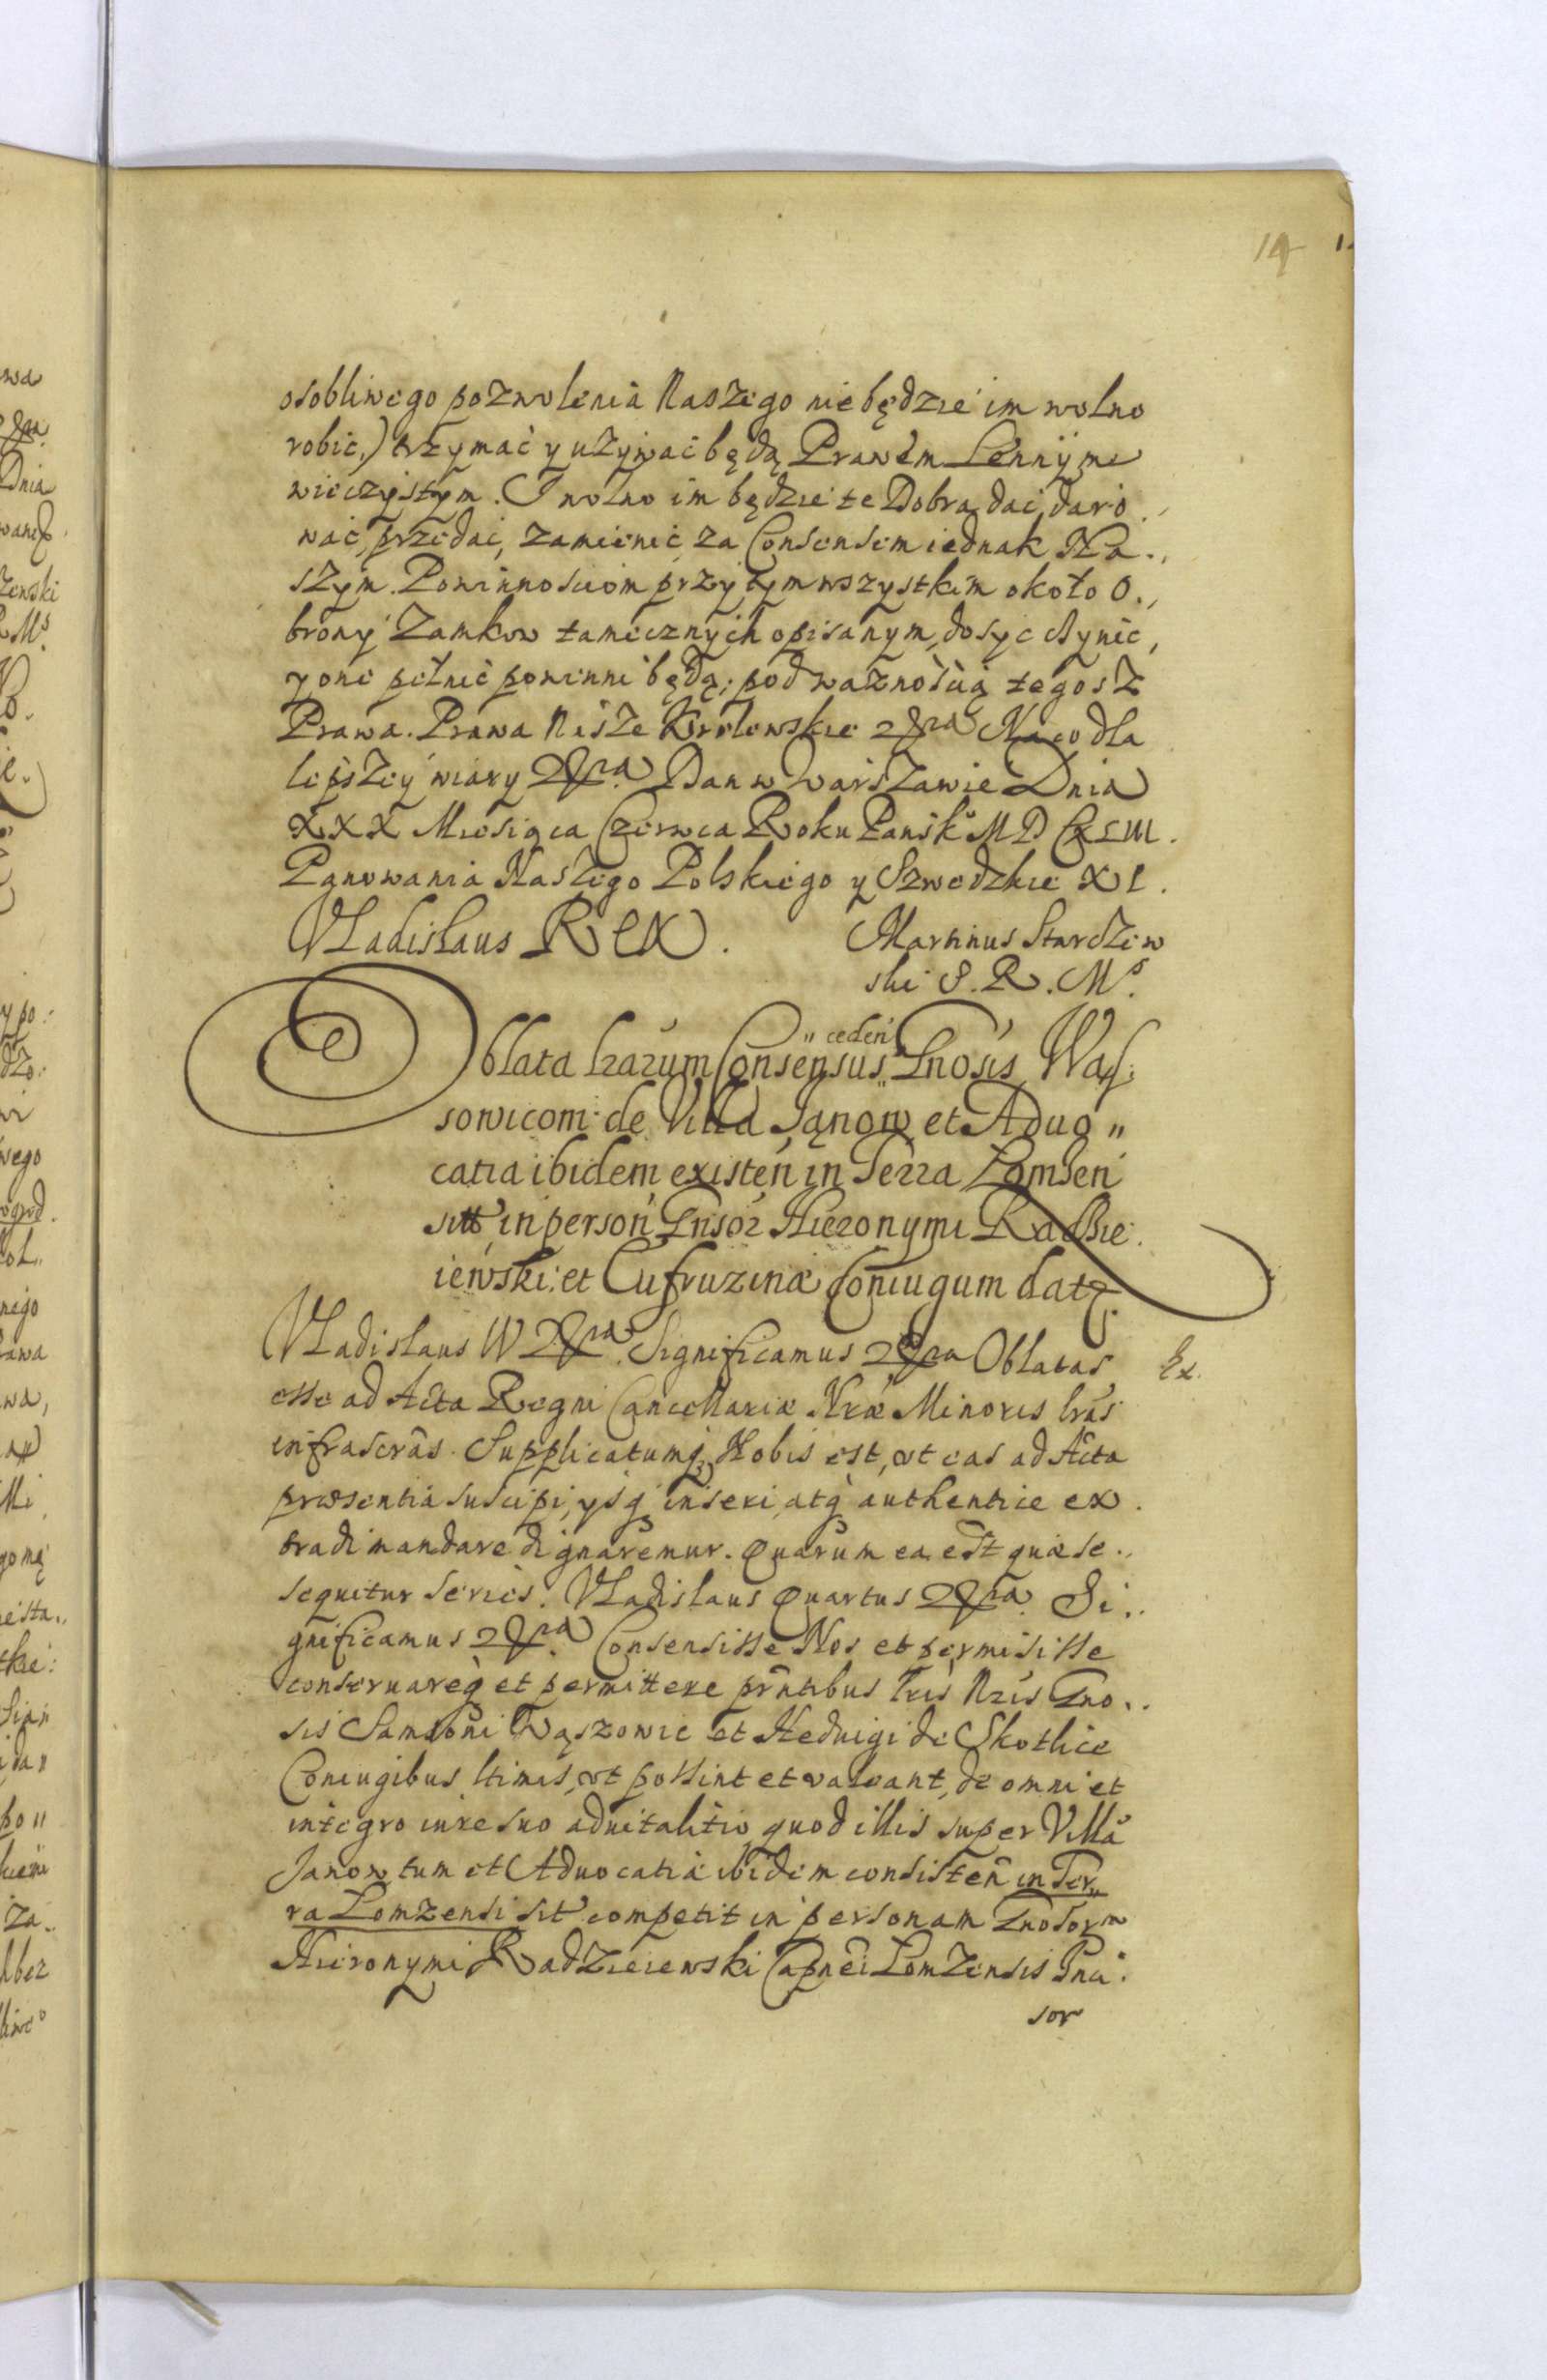 14
osobliwego pozwolenia Naszego nie będzie im wolno
robić,) trzymać y używać będą Prawem Lennÿm
wieczystym. I wolno im będzie te Dobra dać, daro
wać, przedać, zamienić za Consensem iednak Na
szym. Powinnościom przy tym wszystkim około O
brony Zamkow tamecznych opisanym, dosyc czynić,
y one pełnić powinni będą; pod ważnością tegosz
Prawa. Prawa Nasze Krolewskie &ra Na co dla
lepszey wiary &ra Dan w Warszawie Dnia
XXX Miesiąca Czerwca Roku Pańsko MDCXLIII.
Panowania Naszego Polskiego y Szwedzkie XI.
Vladislaus Rex. Martinus Stardzew
ski S. R. Ms.
Oblata Lrarum Consensus ceden Gnosis Wąs
sowicom de Villa Janow et Aduo
catia ibidem existen in Terra Lomsen
sitt in person Gnsor Hieronymi Radzie
iewski et Eufruzinæ Coniugum datæ
Vladislaus IV &ra. Significamus &ra Oblatas
Ex.
esse ad Acta Regni Cancellariæ Nræ Minoris lras
infrascras. Supplicatumq; Nobis est, ut eas ad Acta
præsentia suscipi, ysq inseri, atq authentice ex
tradi mandare dignaremur. Quarum ea est quæ se
sequitur series. Vladislaus Quartus &ra. Si
gnificamus &ra. Consensisse Nos et permisisse
conseruareq et permittere prntibus lris Nris Gno
sis Samsoni Wąszowic et Heduigi de Skotlice
Coniugibus ltimis, ut possint et valeant, de omni et
integro iure suo aduitalitio quod illis super Villa
Janow tum et Aduocatia ibidem consisten in Ter
ra Lomzensi sit competit in personam Gnosorm
Hieronymi Radzieiewski Capnei Lomzensis Gna
sor